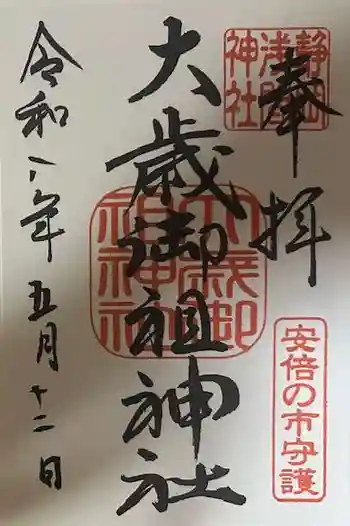 奉拝
静岡
浅間
神社
安倍の市守護
大歳御祖神社
大歳御
祖神社
令和八年五月十二日